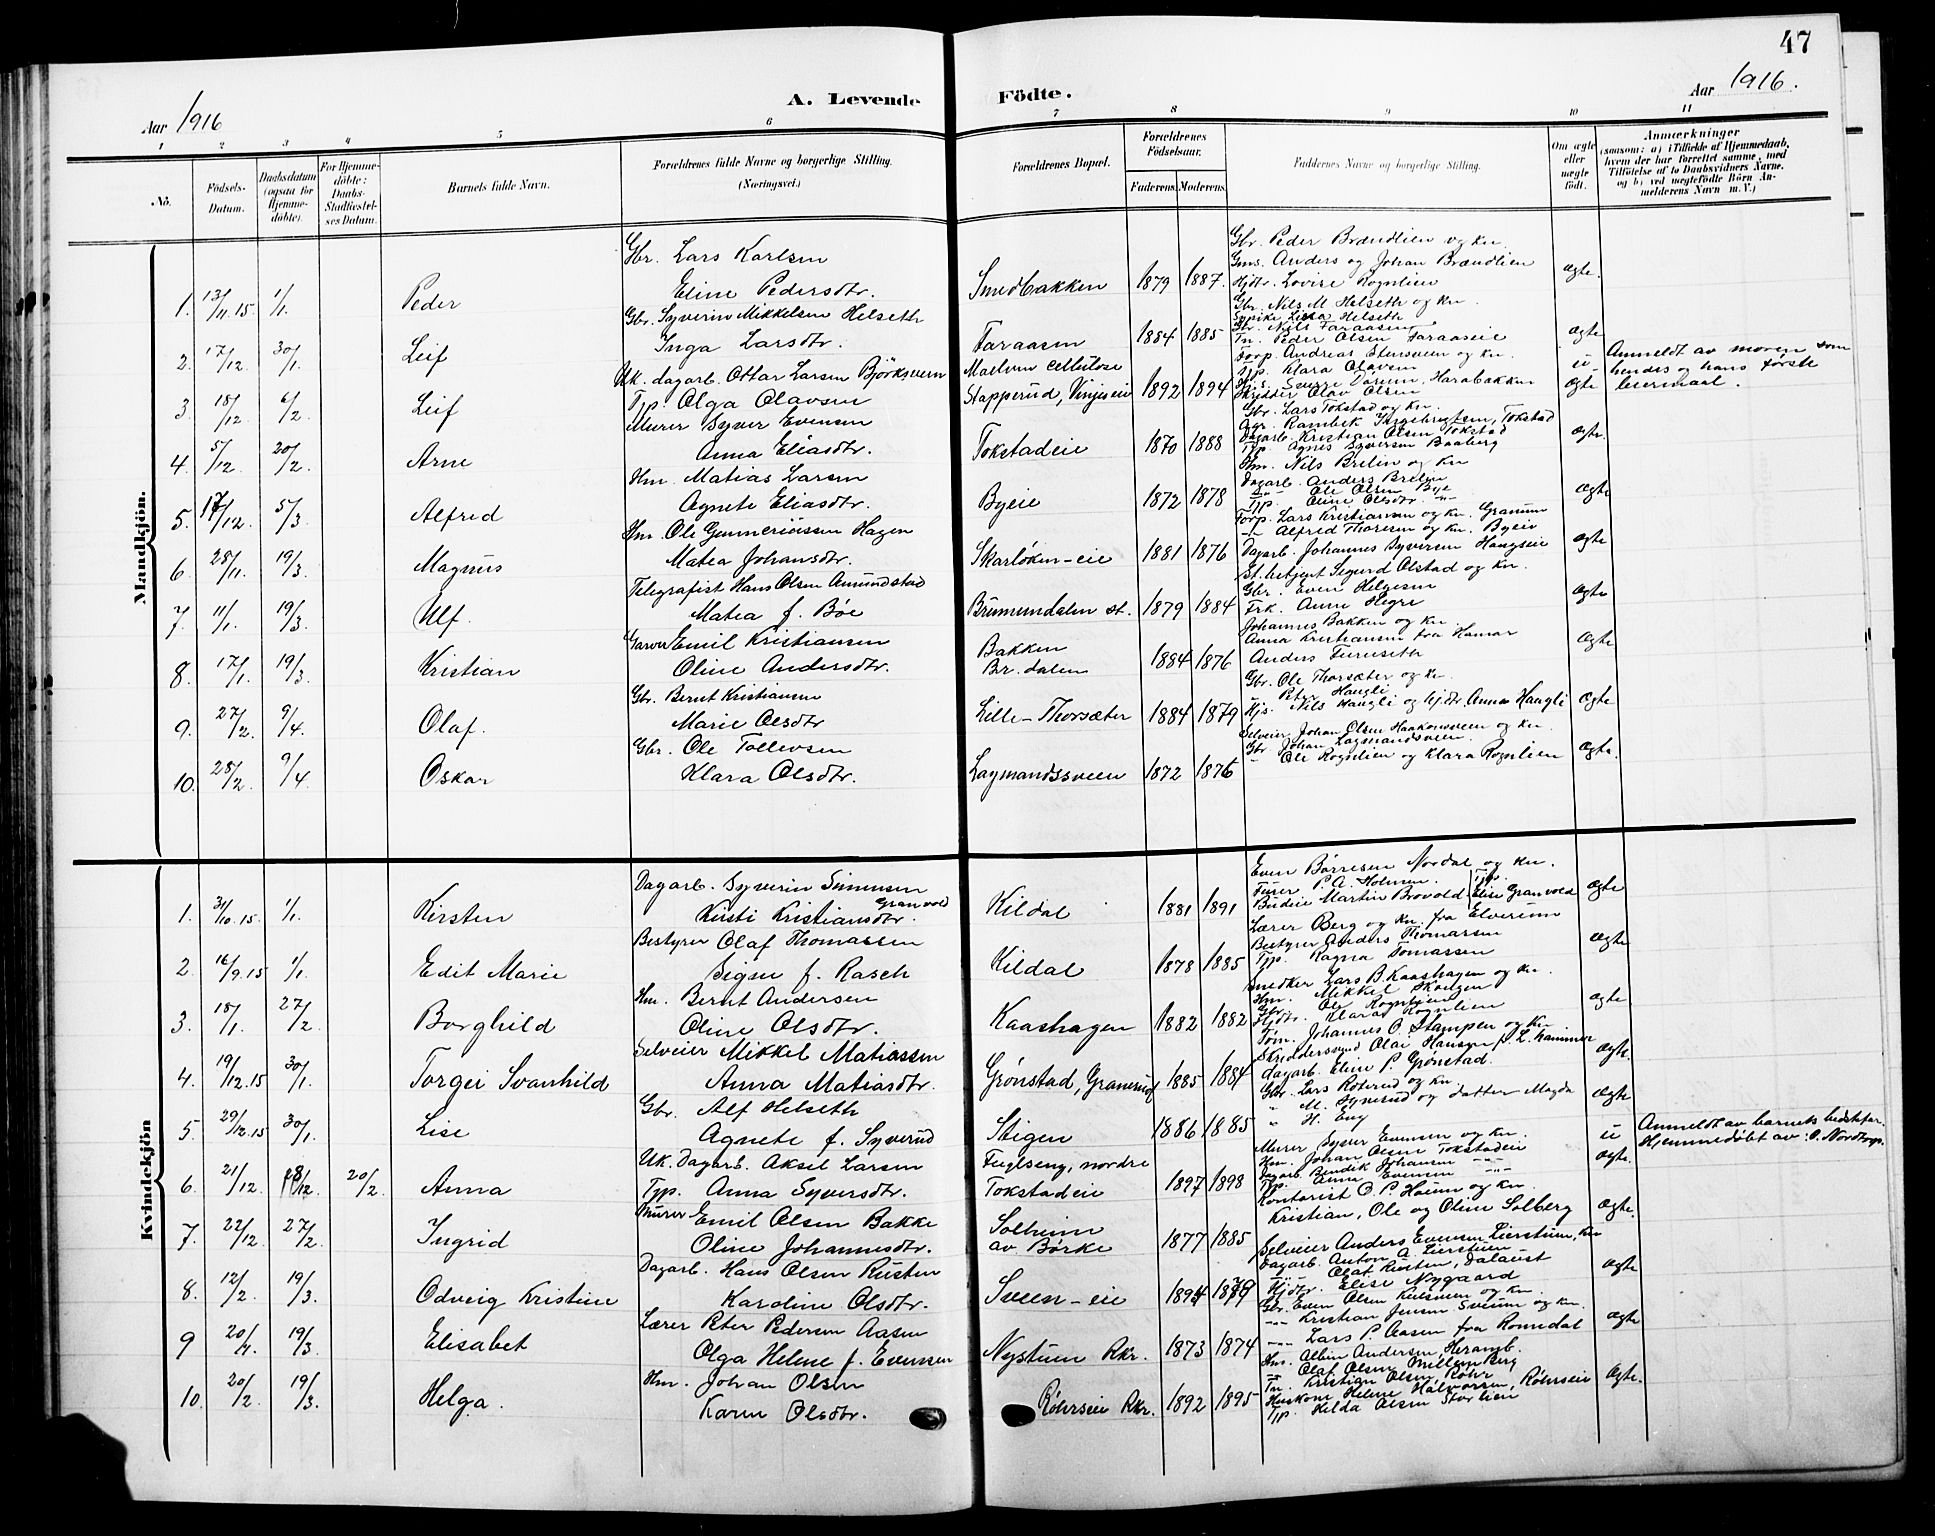 47
Aar 1916
A. Levende Födte.
Aar 1916.
1 2 3 4 5 6 7 8 9 10 11
No.
Födsels-Datum.
Daabsdatum (ogsaa for Hjemmedöbte).
For Hjemmedöbte: Daabs-Stadfæstelses Datum.
Barnets fulde Navn.
Forældrenes fulde Navne og borgerlige Stilling. (Næringsvei.)
Forældrenes Bopæl.
Forældrenes Födselsaar.
Faderens. Moderens.
Faddernes Navne og borgerlige Stilling.
Om ægte eller uægte födt.
Anmærkninger
(saasom: a) i Tilfælde af Hjemmedaab, hvem der har forrettet samme, med Tilföielse af to Daabsvidners Navne, og b) ved uægtefödte Börn Anmelderens Navn m. V.)
Mandkjön.
1. 13/11.15. 1/1. Peder
Gbr. Lars Karlsen
Eline Pedersdtr.
Smedbakken 1879 1887.
Gbr. Peder Brændlien og kn.
Gms. Anders og Johan Brændlien
Hjdtr. Lovise Rognlien
ægte.
2. 17/12. 30/1. Leif
Gbr. Syverin Mikkelsen Helseth
Inga Larsdtr.
Faraasen 1884 1885
Gbr. Nils M. Helseth og kn.
Gbr. Nils Faraasen
Tn. Peder Olsen Faraaseie
ægte
3. 18/12 6/2. Leif
Uk. dagarb. Ottar Larsen Björksveen
Typ. Olga Olavsen
Maelum cellulose
Stapperud, Vinjeseie 1892 1894
Forp. Andreas Stensveen og kn.
Typ. Klara Olavsen
Skrædder Olav Olsen
u ægte
Anmeldt av moren som
hendes og hans første
leiermaal.
4. 5/12. 20/2. Arne
Murer Syver Evensen
Anna Eliasdtr.
Tokstadeie 1870 1888
Gbr. Lars Tokstad og kn.
Agr. Rambek Ingebrigtsen, Tokstad
Dagarb. Kristian Olsen Tokstad
Typ. Agnes Syversen Baaberg
ægte.
5. 17/12. 5/3. Alfred
Hm. Matias Larsen
Agnete Eliasdtr.
Byeie 1872 1878
Hm. Nils Brelin og kn
Dagarb. Anders Brelin
-"- Ole Olsen Bye
Typ. Oline Olsdtr. -"-
ægte
6. 28/11. 19/3. Magnus
Hm. Ole Gunneriussen Hagen
Matea Johansdtr.
Skarløken-eie 1881 1876
Forp. Lars Kristiansen og kn. Granum
-"- Alfred Thoresen og kn. Byeie
Dagarb. Johannes Syversen Haugseie
ægte
7. 11/1. 19/3. Ulf.
Telegrafist Hans Olsen Amundstad
Matea f. Bøe
Brumundalen st. 1879 1884
St. betjent Sigurd Olstad og kn.
Gbr. Even Helgesen
Frk. Anne Hegre
ægte
8. 17/1. 19/3. Kristian
Garver Emil Kristiansen
Oline Andersdtr.
Bakken
Br. dalen 1884 1876
Johannes Bakken og kn.
Anna Kristiansen fra Hamar
Anders Furuseth
ægte
9. 27/2. 9/4. Olaf.
Gbr. Bernt Kristiansen
Marie Olsdtr
Lille-Thorsæter 1884 1879
Gbr. Ole Thorsæter og kn.
Peter Haugli
Hjs. Nils Haugli og hj.dtr. Anna Haugli
ægte
10. 28/2. 9/4 Oskar
Gbr. Ole Tollevsen
Klara Olsdtr.
Lagmandssveen 1872 1876
Selveier Johan Olsen Haakonsveen og kn.
Gbr Johan Lagmandsveen.
" Ole Rognlien og Klara Rognlien
ægte.
Kvindekjön
1. 31/10.15. 1/1. Kirsten
Dagarb. Syverin Simensen
Granvold
Kirsti Kristiansdtr.
Kildal 1881 1891
Even Børresen Nordal og kn.
Furer P. A. Holmen.
Budeie Martin Brovold. Typ. Elise Granvold
ægte
2. 16/9.15 1/1. Edit Marie
Bestyrer Olaf Thomassen
Signe f. Rasch
Kildal 1878 1885
Lærer Berg og kn. fra Elverum
Bestyrer Anders Thomassen
Typ. Ragna Tomassen
ægte
3. 18/1. 27/2. Borghild
Hm. Bernt Andersen
Oline Olsdtr.
Kaashagen 1882 1882
Snedker Lars B. Kaashagen og kn.
Hm. Mikkel Skoligen
Gbr. Ole Rognlien
Hjdtr. Klara Rognlien
ægte
4. 19/12.15 30/1. Torgei Svanhild
Selveier Mikkel Matiassen
Anna Matiasdtr.
Grønstad, Granerud 1885 1884
Tøm. Johannes O. Stampen og kn
Skrædderssvend Olai Hansen, L. hammer
Dagarb. Eline P. Grønstad.
ægte.
5. 29/12.15 30/1. Lise
Gbr. Alf Helseth
Agnete f. Syverud
Stigen 1886 1885
Gbr. Lars Roterud og kn.
" M. Syverud og datter Magda
" H. Eng
ægte
6. 21/12. 28/12. 20/2. Anna
Uk. Dagarb. Aksel Larsen
Typ. Anna Syversdtr.
Fuglseng, nordre
Tokstadeie 1897 1898
Murer Syver Evensen og kn.
Hm. Johan Olsen Tokstadeie
Dagarb. Bendik Johansen -"-
Typ. Anna Evensen -"-
u ægte.
Anmeldt av barnets bedstefar.
Hjemmedøbt av: O. Nordbye.
7. 22/12. 27/2. Ingrid
Murer Emil Olsen Bakke
Oline Johannesdtr.
Solheim
av Børke 1877 1885
Kontorist O. P. Hoium og kn.
Kristian, Ole og Oline Solberg
ægte.
8. 12/2. 19/3. Odveig Kristine
Dagarb. Hans Olsen Rusten
Karoline Olsdtr.
Sveen-eie 1894 1879
Selveier Anders Evensen Lierstuen, kn
Dagarb. Anton A. Lierstuen
Olaf Rusten, Dalaust
Hjdtr. Elise Nygaard
ægte
9 20/1. 19/3. Elisabet
Lærer Peter Pedersen Aasen
Olga Helene f. Evensen
Nystuen Rkr. 1873 1874
Gbr. Even Olsen Kulsveen og kn.
-"- Kristian Jensen Sveum og kn.
-"- Lars P. Aasen fra Romedal
ægte
10. 20/2. 19/3. Helga.
Hm. Johan Olsen
Karen Olsdtr.
Røhrseie Rkr. 1892 1895
Hm. Albin Andersen, Keramb.
-"- Olaf Olsen Mellem Berg
Tn. Kristian Olsen, Røhr
Huskone Helene Halvorsen, Røhrseie
Typ. Hilda Olsen Storlien
ægte.